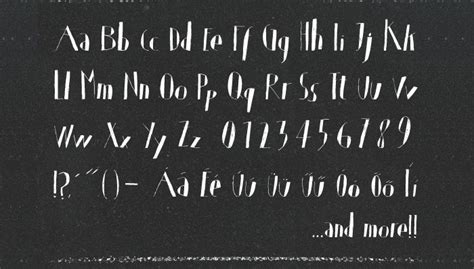 Aa Bb Cc Dd Ee Ff Gg Hh Ii Jj Kk
Ll Mm Nn Oo Pp Qq Rr Ss Tt Uu Vv
Ww Xx Yy Zz 0 1 2 3 4 5 6 7 8 9
!?,´˝()– Áá Éé Úú Üü Űű Öö Őő Íí
...and more!!